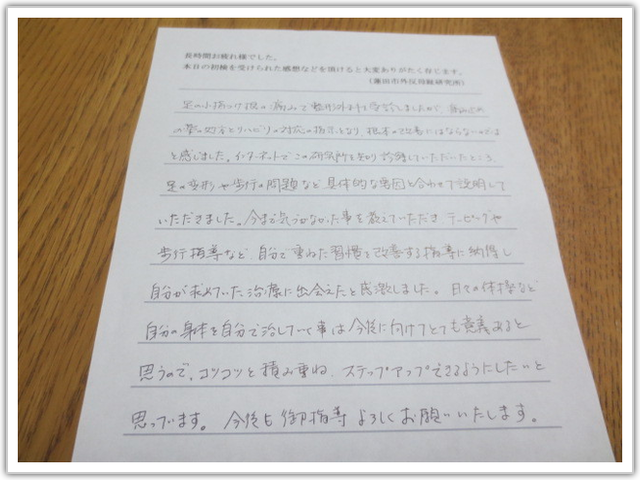 長時間お疲れ様でした。
本日の初検を受けられた感想などを頂けると大変ありがたく存じます。
(蓮田市外反母趾研究所)
足の小指つけ根の痛みで整形外科を受診しましたが、痛み止め
の薬の処方とリハビリの対応の指示となり 根本の改善にはならないのでは
と感じました。インターネットでこの研究所を知り 診察していただいたところ
足の変形や歩行の問題など 具体的な要因と合わせて説明して
いただきました。今まで気づかなかった事を教えていただき、テーピングや
歩行指導など 自分で重ねた習慣を改善する指導に納得し
自分が求めていた治療に出会えたと感激しました。日々の体操など
自分の身体を自分で治していく事は今後に向けてとても意義あると
思うので、コツコツと積み重ね、ステップアップできるようにしたいと
思っています。今後も御指導よろしくお願いいたします。